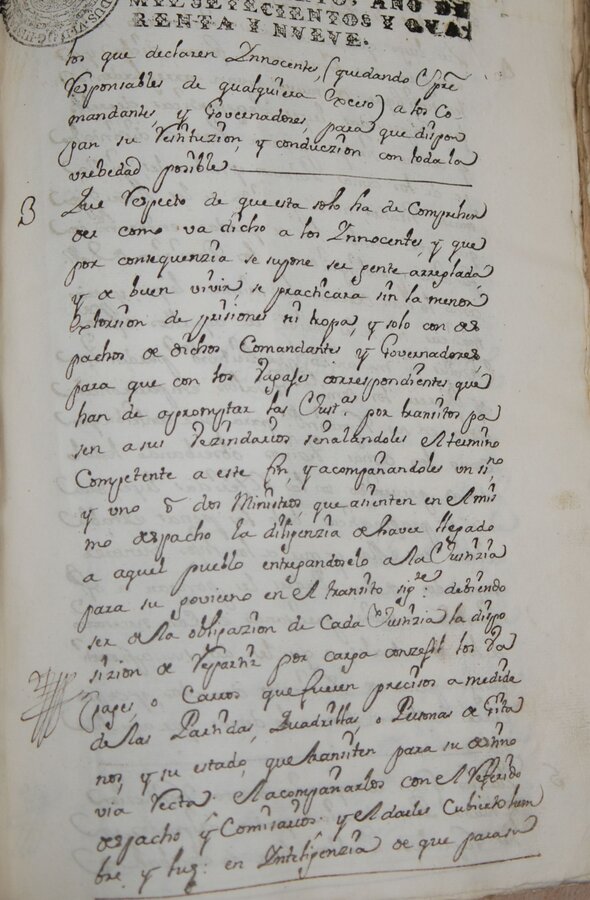 MYL SETECIENTOS Y QVA-
RENTA Y NVEVE.
los que declaren Ynnocentes, (quedando Spre
responsables de qualquiera exceso) a los Co
mandantes, y Governadores, para que dispon
gan su restituzion, y conduczion con toda la
vrebedad posible
3 Que respecto de que esta solo ha de Comprehen
der como va dicho a los Ynnocentes, y que
por consequenzia se supone ser gente arreglada
y de buen vivir, se practicara sin la menor
extorsion de prisiones ni tropa, y solo con des
pachos de dichos Comandantes y Governadores
para que con los vagages correspondientes que
han de aprompttar las Just.as por transitos pa
sen a sus vezindarios señalandoles el termino
Competente a este fin, y acompañandoles un ss.no
y uno ō dos Ministros, que asienten en el mis
mo despacho la diligenzia de haver llegado
a aquel pueblo entregandoselo a la Justizia
para su govierno en el transito sig.te: debiendo
ser de la obligazion de Cada Justizia la dispo
sizion de repartir por carga conzegil los va
gages, o Carros que fueren precisos a medida
de las Partidas, Quadrillas, o Personas de Gita
nos, y su estado, que transiten para su destino
via recta. el acompañarlos con el referido
despacho y Comisarios y el darles Cubierto lum
bre y luz: en Ynteligenzia de que para su